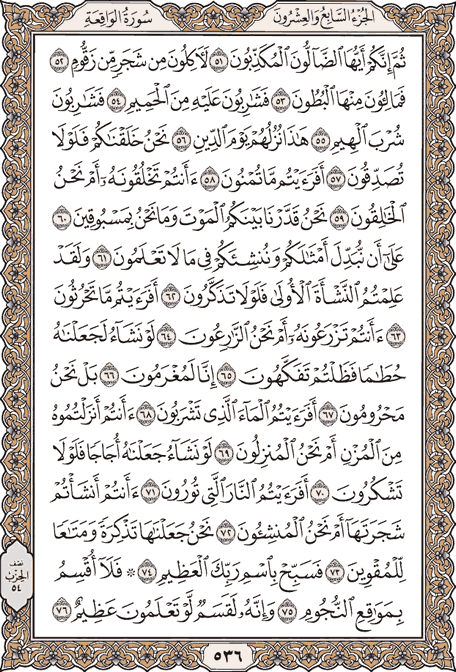 الجزء السابع والعشرون
سورة الواقعة
ثُمَّ إِنَّكُمْ أَيُّهَا ٱلضَّآلُّونَ ٱلْمُكَذِّبُونَ ٥١ لَءَاكِلُونَ مِن شَجَرٍ مِّن زَقُّومٍ ٥٢
فَمَالِـُٔونَ مِنْهَا ٱلْبُطُونَ ٥٣ فَشَٰرِبُونَ عَلَيْهِ مِنَ ٱلْحَمِيمِ ٥٤ فَشَٰرِبُونَ
شُرْبَ ٱلْهِيمِ ٥٥ هَٰذَا نُزُلُهُمْ يَوْمَ ٱلدِّينِ ٥٦ نَحْنُ خَلَقْنَٰكُمْ فَلَوْلَا
تُصَدِّقُونَ ٥٧ أَفَرَءَيْتُم مَّا تُمْنُونَ ٥٨ ءَأَنتُمْ تَخْلُقُونَهُۥٓ أَمْ نَحْنُ
ٱلْخَٰلِقُونَ ٥٩ نَحْنُ قَدَّرْنَا بَيْنَكُمُ ٱلْمَوْتَ وَمَا نَحْنُ بِمَسْبُوقِينَ ٦٠
عَلَىٰٓ أَن نُّبَدِّلَ أَمْثَٰلَكُمْ وَنُنشِئَكُمْ فِى مَا لَا تَعْلَمُونَ ٦١ وَلَقَدْ
عَلِمْتُمُ ٱلنَّشْأَةَ ٱلْأُولَىٰ فَلَوْلَا تَذَكَّرُونَ ٦٢ أَفَرَءَيْتُم مَّا تَحْرُثُونَ
٦٣ ءَأَنتُمْ تَزْرَعُونَهُۥٓ أَمْ نَحْنُ ٱلزَّٰرِعُونَ ٦٤ لَوْ نَشَآءُ لَجَعَلْنَٰهُ
حُطَٰمًا فَظَلْتُمْ تَفَكَّهُونَ ٦٥ إِنَّا لَمُغْرَمُونَ ٦٦ بَلْ نَحْنُ
مَحْرُومُونَ ٦٧ أَفَرَءَيْتُمُ ٱلْمَآءَ ٱلَّذِى تَشْرَبُونَ ٦٨ ءَأَنتُمْ أَنزَلْتُمُوهُ
مِنَ ٱلْمُزْنِ أَمْ نَحْنُ ٱلْمُنزِلُونَ ٦٩ لَوْ نَشَآءُ جَعَلْنَٰهُ أُجَاجًا فَلَوْلَا
تَشْكُرُونَ ٧٠ أَفَرَءَيْتُمُ ٱلنَّارَ ٱلَّتِى تُورُونَ ٧١ ءَأَنتُمْ أَنشَأْتُمْ
شَجَرَتَهَآ أَمْ نَحْنُ ٱلْمُنشِـُٔونَ ٧٢ نَحْنُ جَعَلْنَٰهَا تَذْكِرَةً وَمَتَٰعًا
لِّلْمُقْوِينَ ٧٣ فَسَبِّحْ بِٱسْمِ رَبِّكَ ٱلْعَظِيمِ ٧٤ ۞ فَلَآ أُقْسِمُ
بِمَوَٰقِعِ ٱلنُّجُومِ ٧٥ وَإِنَّهُۥ لَقَسَمٌ لَّوْ تَعْلَمُونَ عَظِيمٌ ٧٦
نصف
الحزب
٥٤
٥٣٦